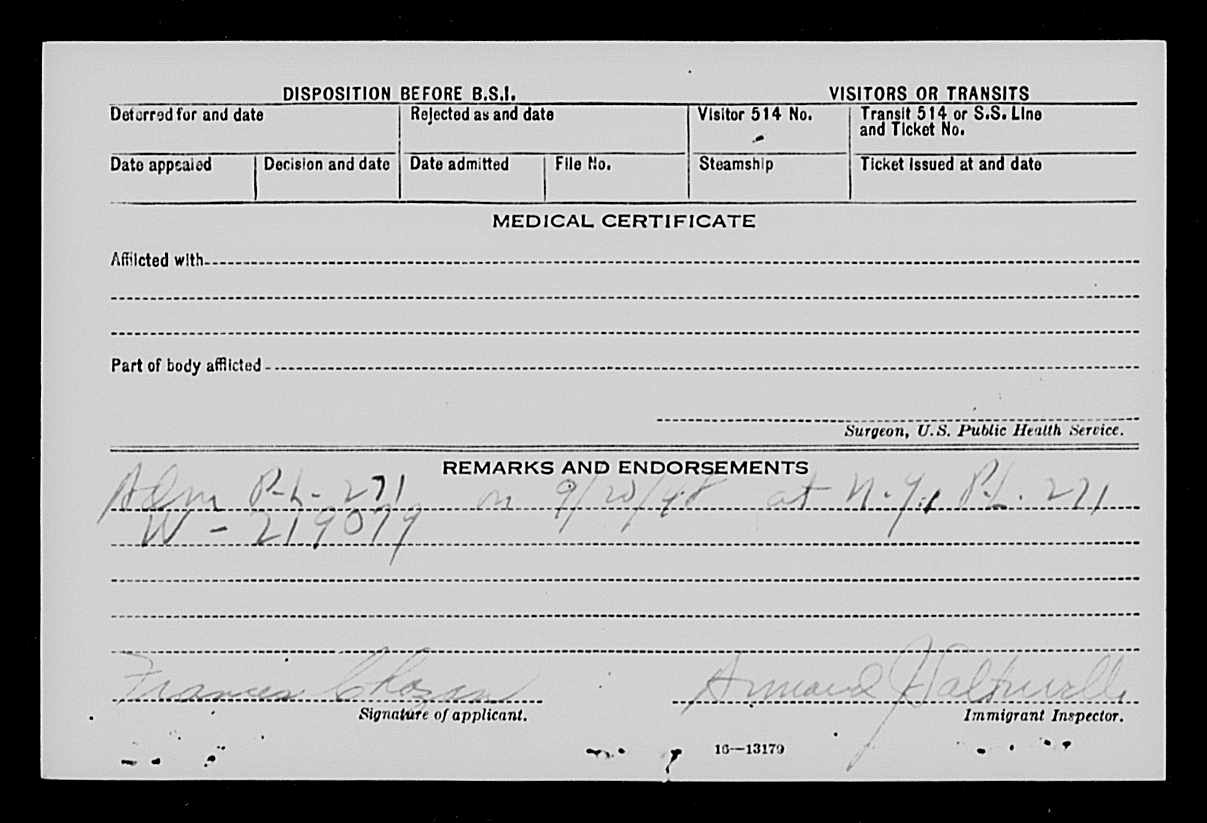 DISPOSITION BEFORE B.S.I. VISITORS OR TRANSITS
Deferred for and date Rejected as and date Visitor 514 No. Transit 514 or S.S. Line and Ticket No.
Date appealed Decision and date Date admitted File No. Steamship Ticket issued at and date
MEDICAL CERTIFICATE
Afflicted with
Part of body afflicted
Surgeon, U.S. Public Health Service.
REMARKS AND ENDORSEMENTS
Adm P-L-271 on 9/20/48 at N.Y., P.L. 271
W-219079
Francis
Armand J.
Signature of applicant. Immigrant Inspector.
16—13179